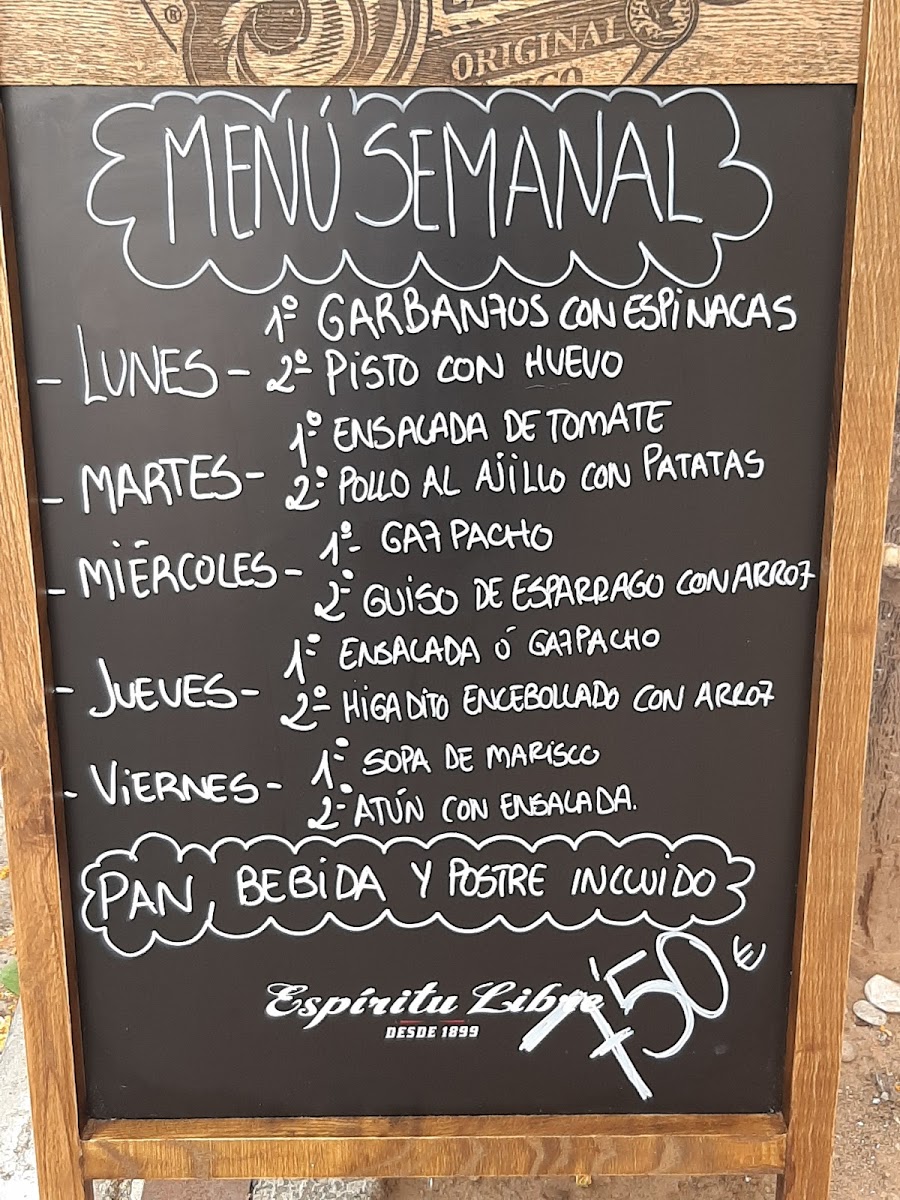 ORIGINAL
MENÚ SEMANAL
- LUNES - 1º GARBANZOS CON ESPINACAS
2º PISTO CON HUEVO
- MARTES - 1º ENSALADA DE TOMATE
2º POLLO AL AJILLO CON PATATAS
- MIÉRCOLES - 1º GAZPACHO
2º GUISO DE ESPARRAGO CON ARROZ
- JUEVES - 1º ENSALADA Ó GAZPACHO
2º HIGADITO ENCEBOLLADO CON ARROZ
- VIERNES - 1º SOPA DE MARISCO
2º ATÚN CON ENSALADA.
PAN, BEBIDA Y POSTRE INCLUIDO
Espíritu Libre
DESDE 1899
7'50€